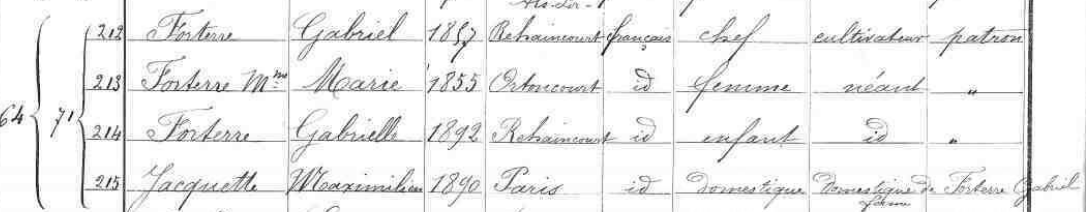 212 Forterre Gabriel 1857 Rehaincourt français chef cultivateur patron
213 Forterre Mme Marie 1855 Ortoncourt id femme néant "
64 71
214 Forterre Gabrielle 1892 Rehaincourt id enfant id "
215 Jacquette Maximilien 1890 Paris id domestique domestique de Forterre Gabriel
ferme